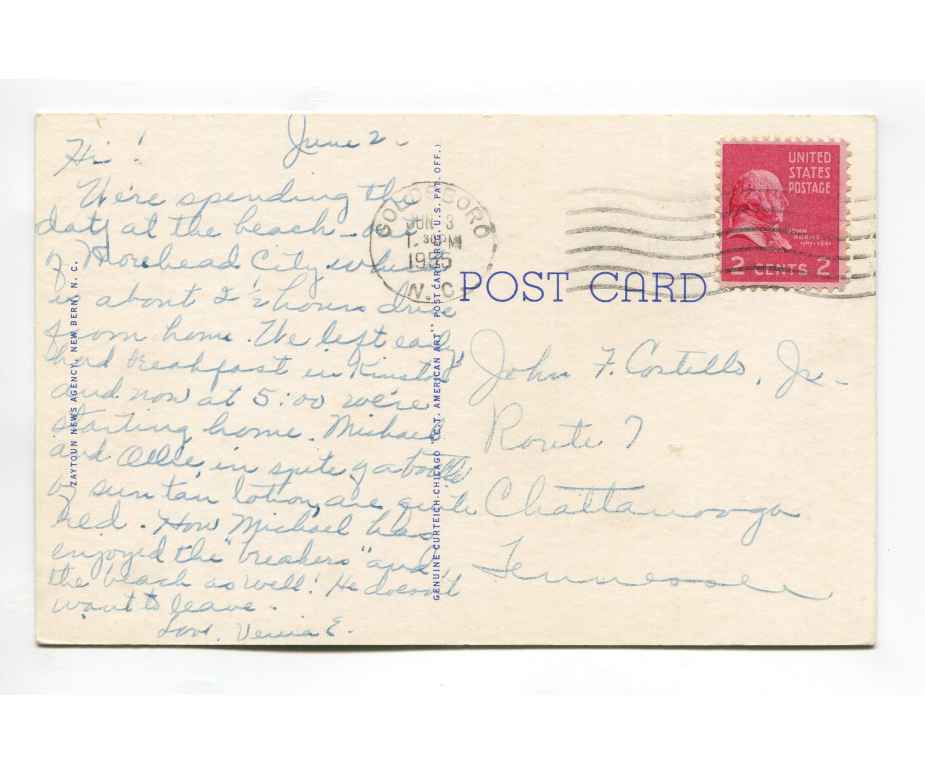 June 2.
Hi!
We're spending the
day at the beach - out
of Morehead City which
is about 2 1/2 hours drive
from home. We left early,
had breakfast in Kinston
and now at 5:00 we're
starting home. Michael
and Ollie, in spite of a bottle
of sun tan lotion, are quite
red. How Michael has
enjoyed the "breakers" and
the beach as well! He doesn't
want to leave.
Love, E.
ZAYTOUN NEWS AGENCY, NEW BERN, N. C.
GENUINE CURTEICH-CHICAGO "C.T. AMERICAN ART" POST CARD (REG. U.S. PAT. OFF.)
GOLDSBORO
JUN 3
1955
N.C.
UNITED
STATES
POSTAGE
JOHN
ADAMS
2 CENTS 2
POST CARD
John F. Costello, Jr.
Route 7
Chattanooga
Tennessee